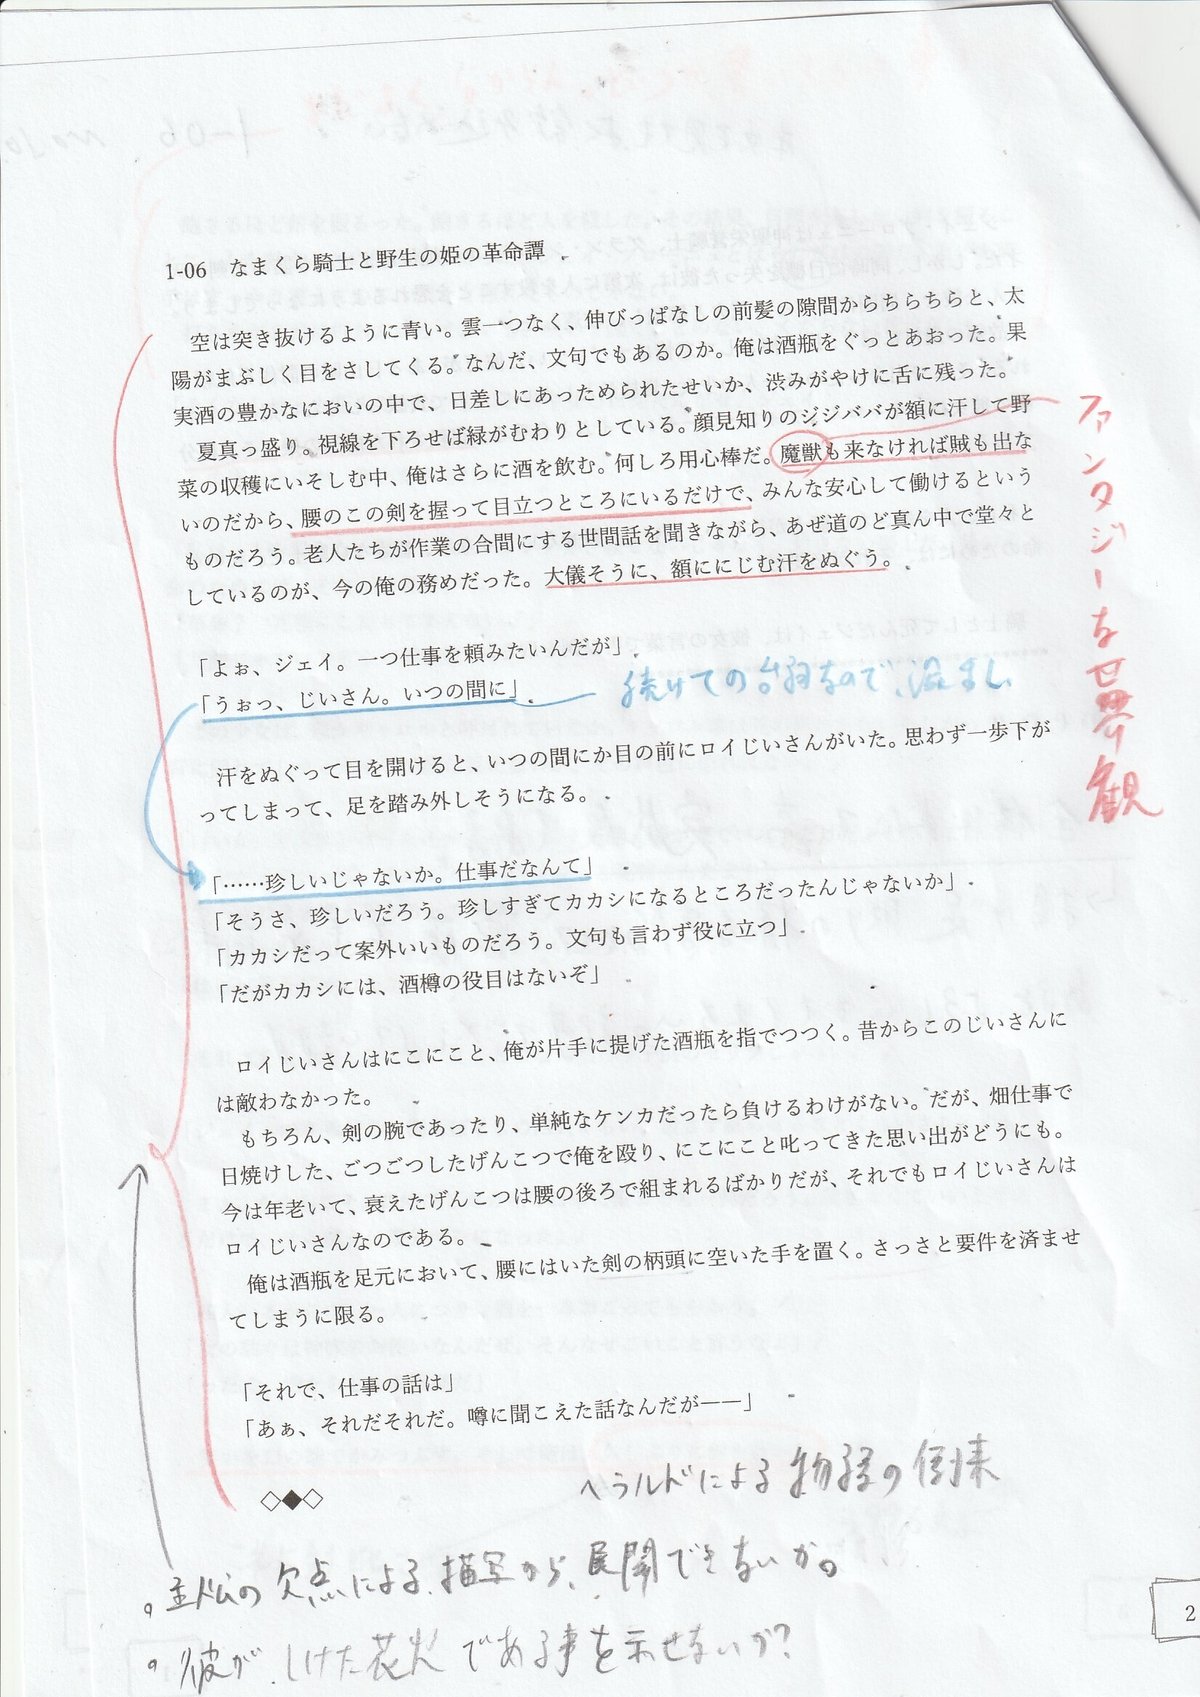 1-06　なまくら騎士と野生の姫の革命譚
空は突き抜けるように青い。雲一つなく、伸びっぱなしの前髪の隙間からちらちらと、太
陽がまぶしく目をさしてくる。なんだ、文句でもあるのか。俺は酒瓶をぐっとあおった。果
実酒の豊かなにおいの中で、日差しにあっためられたせいか、渋みがやけに舌に残った。
夏真っ盛り。視線を下ろせば緑がむわりとしている。顔見知りのジジババが額に汗して野
菜の収穫にいそしむ中、俺はさらに酒を飲む。何しろ用心棒だ。魔獣も来なければ賊も出な
いのだから、腰のこの剣を握って目立つところにいるだけで、みんな安心して働けるという
ものだろう。老人たちが作業の合間にする世間話を聞きながら、あぜ道のど真ん中で堂々と
しているのが、今の俺の務めだった。大儀そうに、額ににじむ汗をぬぐう。
ファンタジーな世界観
「よぉ、ジェイ。一つ仕事を頼みたいんだが」
「うぉっ、じいさん。いつの間に」
続けての台詞なので、
汗をぬぐって目を開けると、いつの間にか目の前にロイじいさんがいた。思わず一歩下が
ってしまって、足を踏み外しそうになる。
「……珍しいじゃないか。仕事だなんて」
「そうさ、珍しいだろう。珍しすぎてカカシになるところだったんじゃないか」
「カカシだって案外いいものだろう。文句も言わず役に立つ」
「だがカカシには、酒樽の役目はないぞ」
ロイじいさんはにこにこと、俺が片手に提げた酒瓶を指でつつく。昔からこのじいさんに
は敵わなかった。
もちろん、剣の腕であったり、単純なケンカだったら負けるわけがない。だが、畑仕事で
日焼けした、ごつごつしたげんこつで俺を殴り、にこにこと叱ってきた思い出がどうにも。
今は年老いて、衰えたげんこつは腰の後ろで組まれるばかりだが、それでもロイじいさんは
ロイじいさんなのである。
俺は酒瓶を足元において、腰にはいた剣の柄頭に空いた手を置く。さっさと要件を済ませ
てしまうに限る。
「それで、仕事の話は」
「あぁ、それだそれだ。噂に聞こえた話なんだが――」
◇◆◇
ヘラルドによる物語の到来
。主人公の欠点による、描写から、展開できないか。
。彼が、しけた花火である事を示せないか?
2